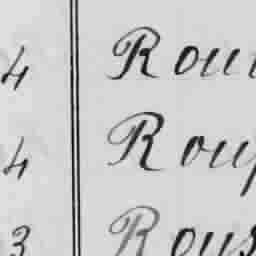 4 Rou
4 Roup
3 Rous